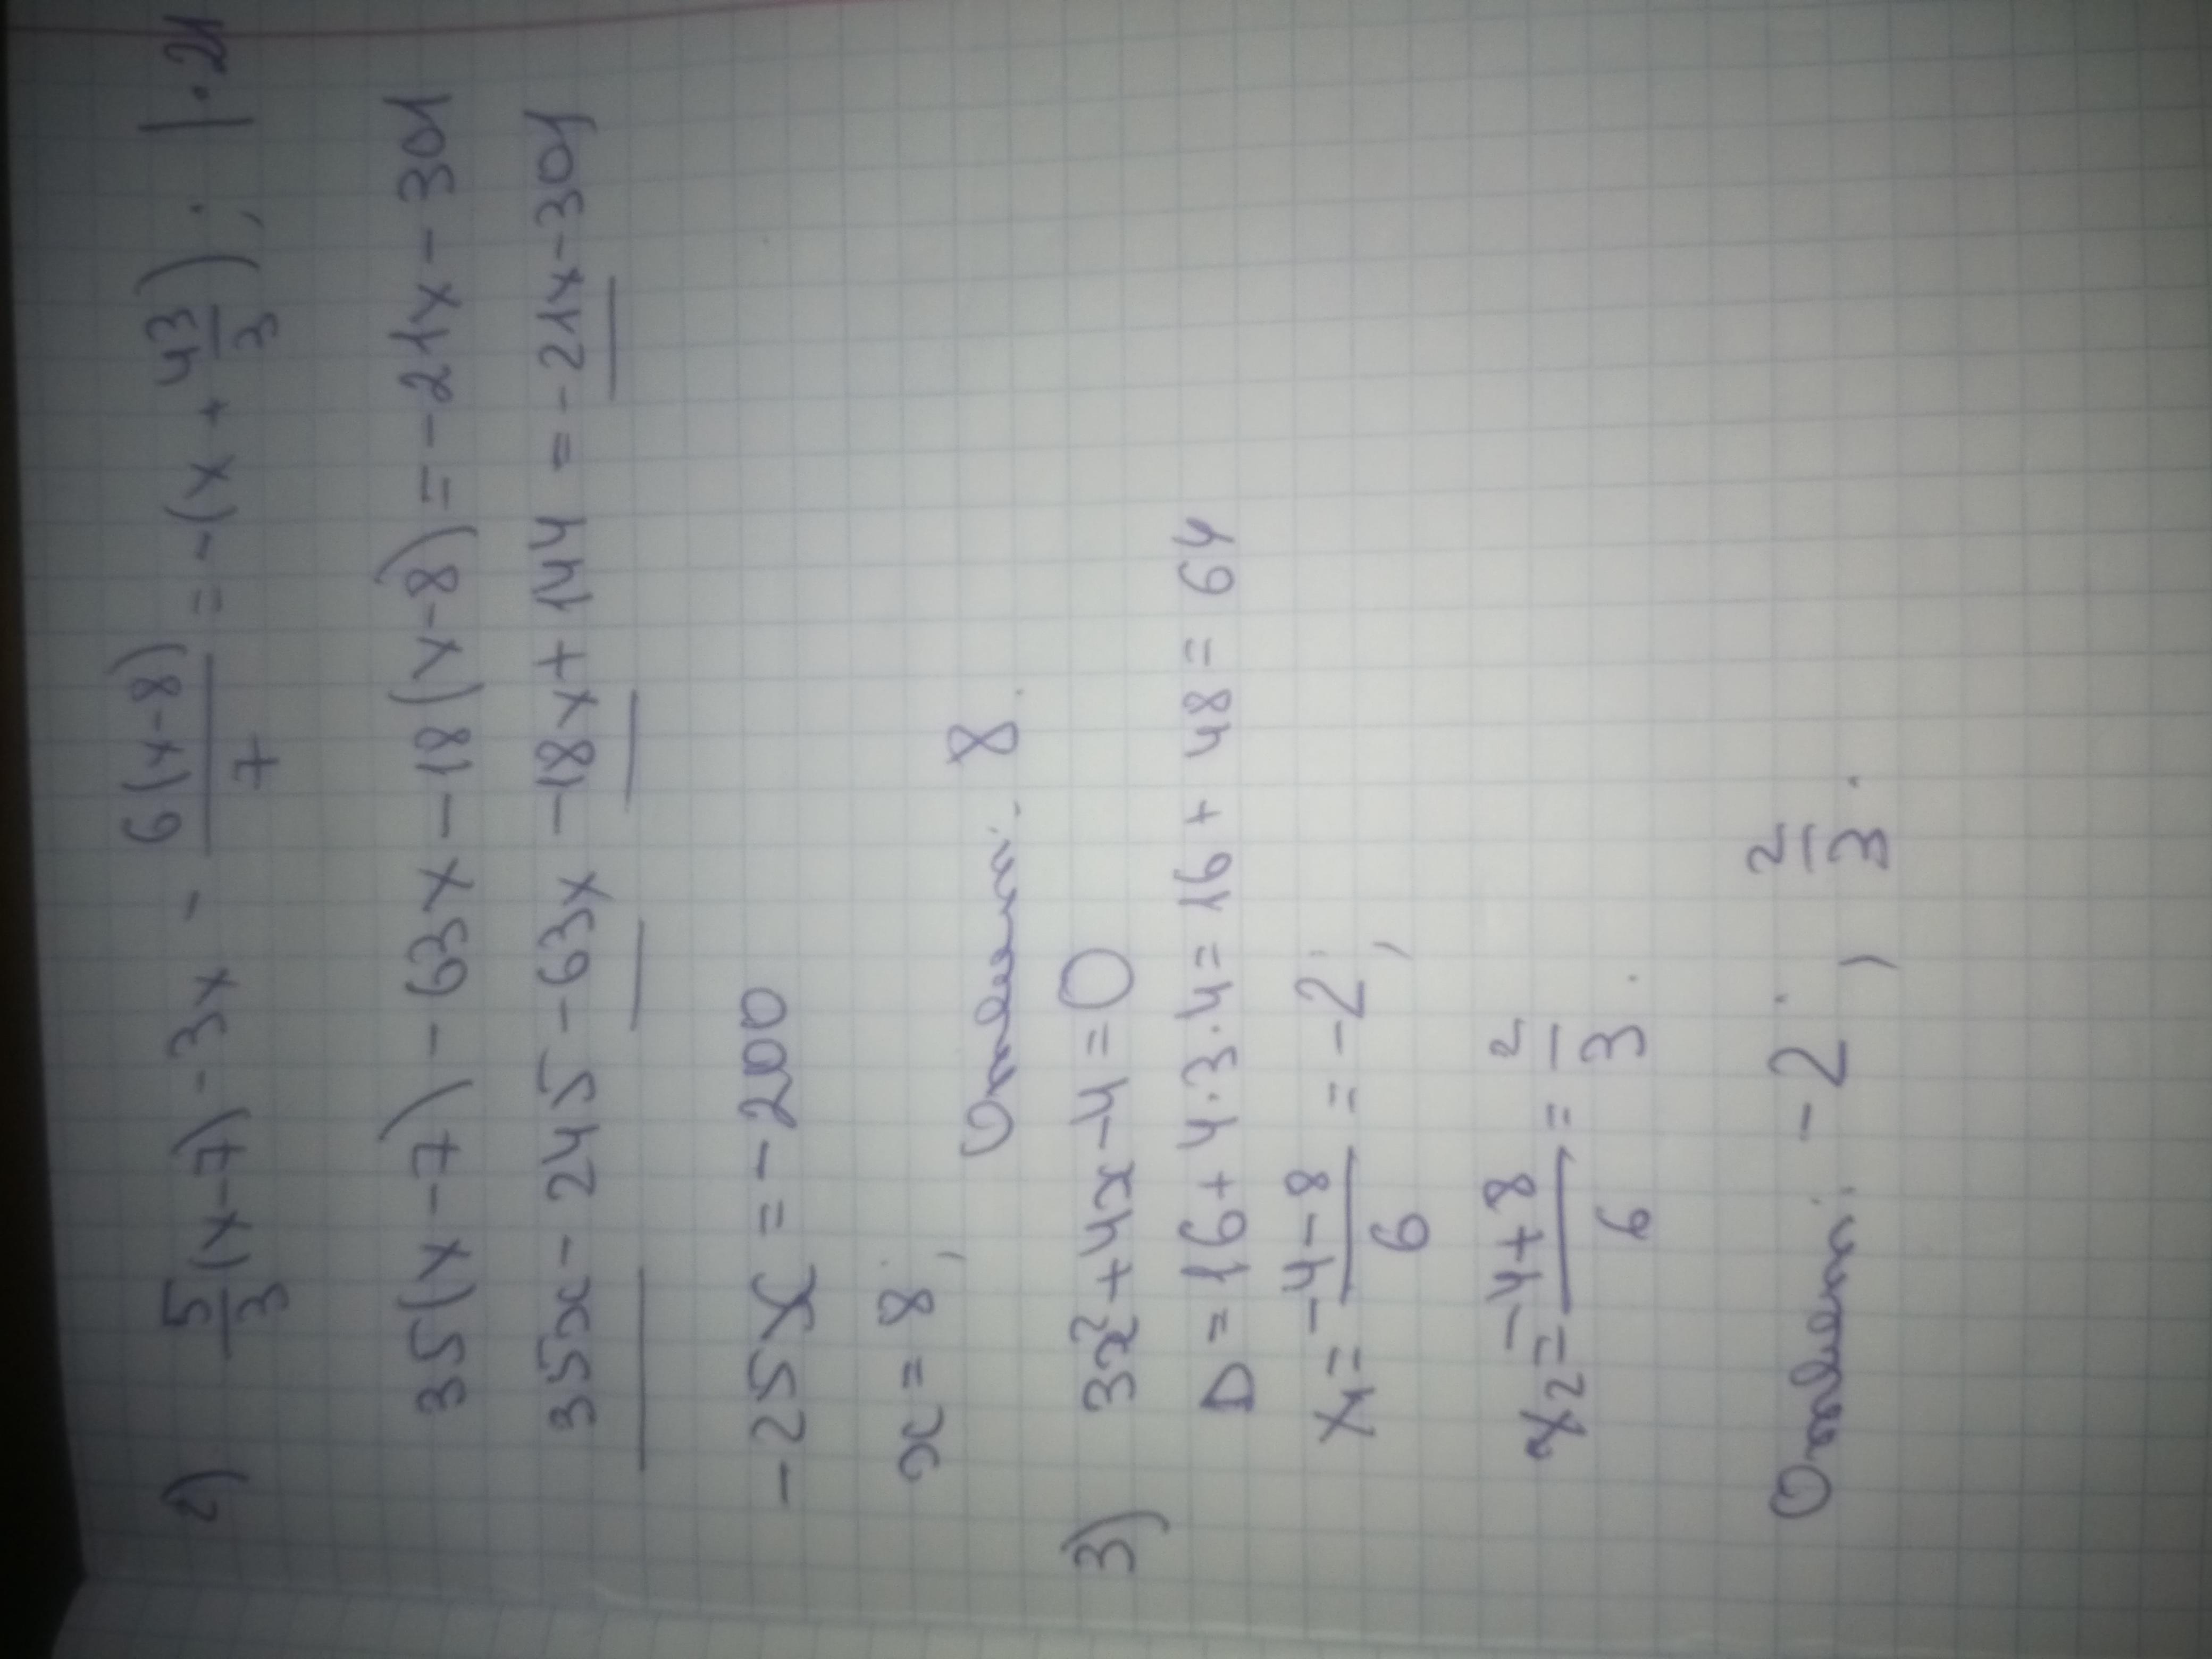 2) 5/3 (x-7) - 3x - 6(x-8)/7 = -(x + 43/3); |·21
35(x-7) - 63x - 18(x-8) = -21x - 301
35x - 245 - 63x - 18x + 144 = -21x - 301
-25x = -200
x = 8;
Ответ: 8.
3) 3x²+4x-4=0
D = 16 + 4·3·4 = 16 + 48 = 64
x₁ = -4-8/6 = -2;
x₂ = -4+8/6 = 2/3.
Ответ: -2; 2/3.